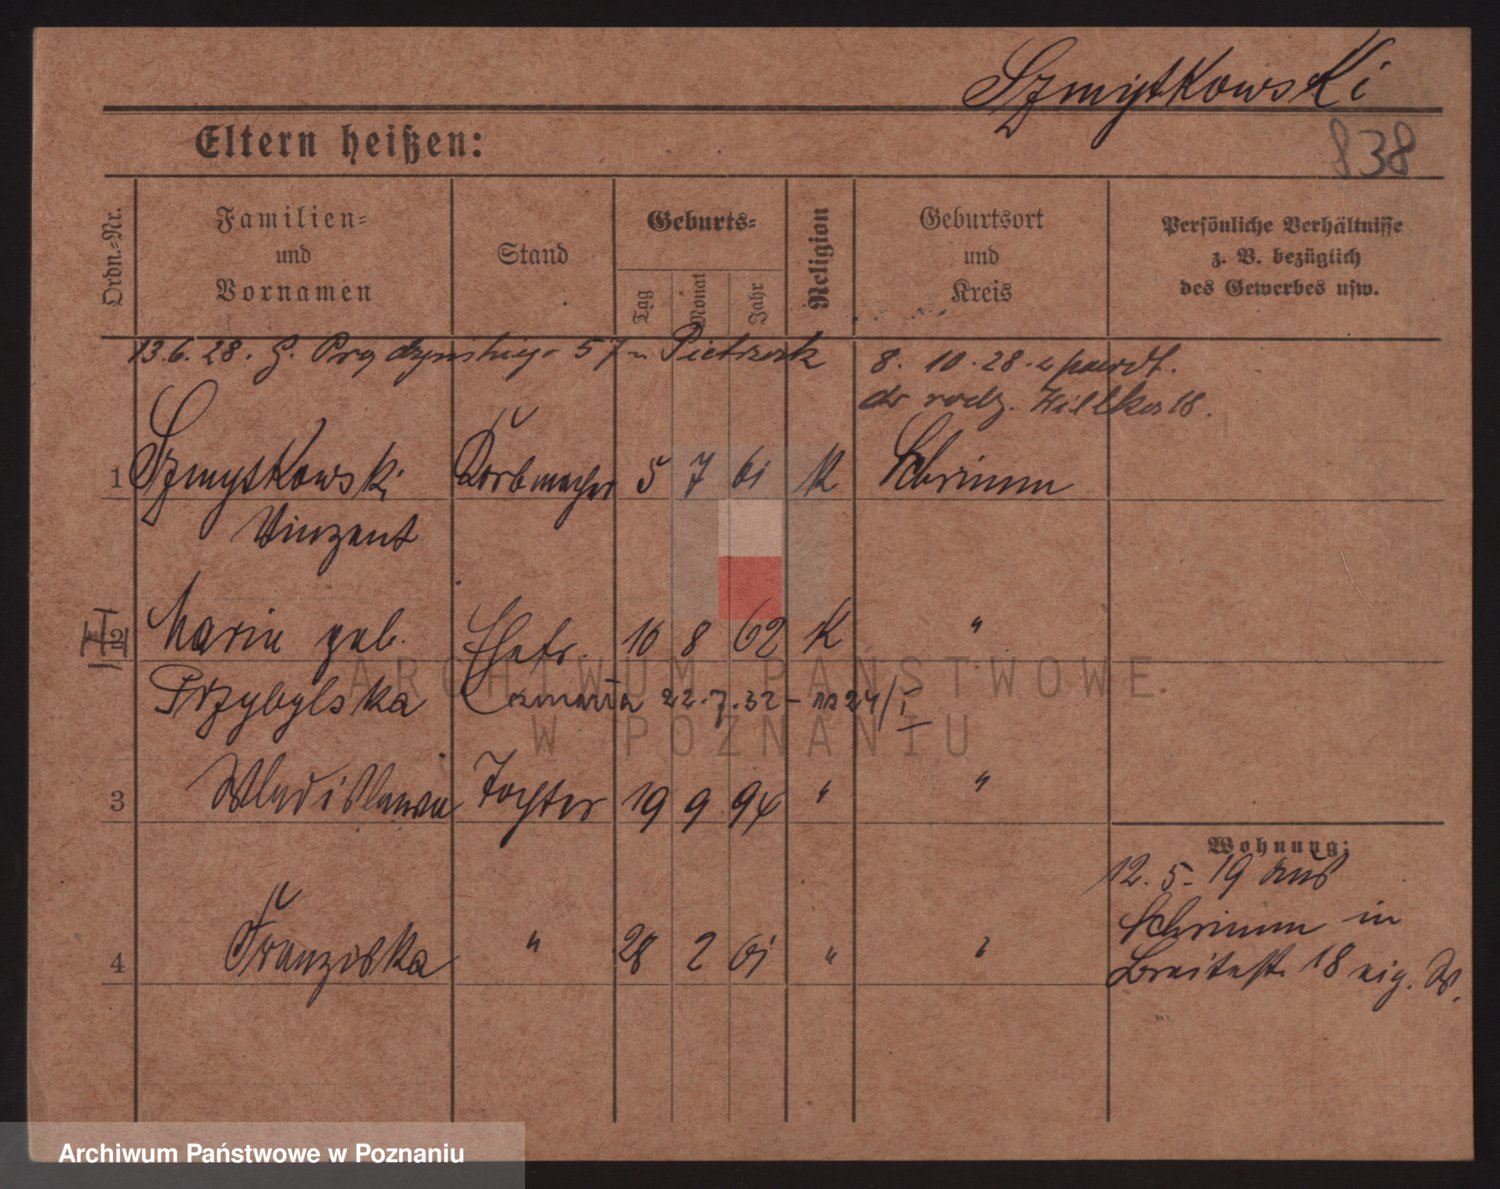 Szmytkowski
838
Eltern heißen:
Ordn.-Nr.
Familien-
und
Vornamen
Stand
Geburts-
Tag
Monat
Jahr
Religion
Geburtsort
und
Kreis
Persönliche Verhältnisse
z. B. bezüglich
des Gewerbes usw.
13.6.28. G. Prądzyńskiego 57 u Pietrzak
8. 10. 28. z powrot.
do rodz.
1 Szmytkowski Korbmacher 5 7 61 K Schrimm
Vinzent
2 Maria geb. Ehefr. 16 8 62 K "
Przybylska zmarła 22.7.32 - nr 24/I
3 Wladislawa Tochter 19 9 94 " "
Wohnung:
12. 5. 19 aus
Schrimm in
Breitestr. 18 eig. W.
4 Franziska " 28 2 01 " "
ARCHIWUM PAŃSTWOWE
W POZNANIU
Archiwum Państwowe w Poznaniu